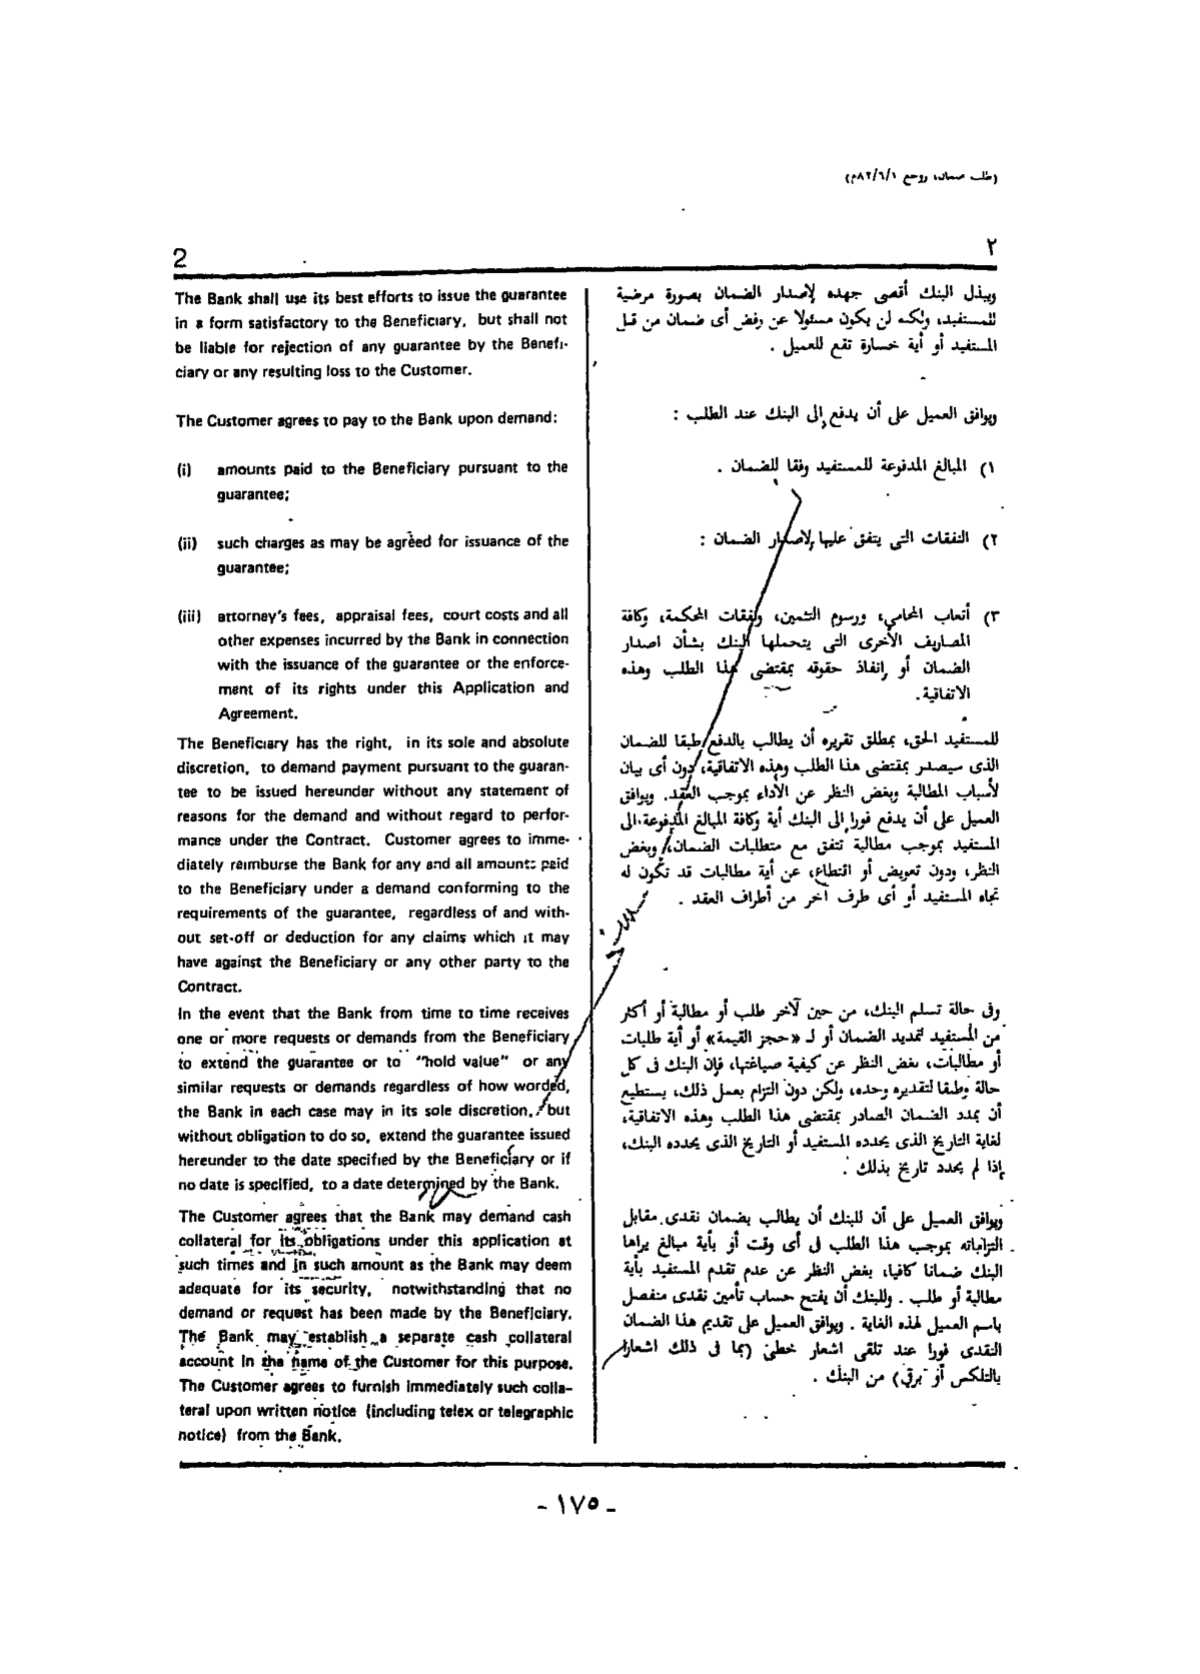 (طلب ضمان، روجع ٨٢/٦/١م)
2
٢
The Bank shall use its best efforts to issue the guarantee
in a form satisfactory to the Beneficiary, but shall not
be liable for rejection of any guarantee by the Benefi-
ciary or any resulting loss to the Customer.
The Customer agrees to pay to the Bank upon demand:
(i) amounts paid to the Beneficiary pursuant to the
guarantee;
(ii) such charges as may be agreed for issuance of the
guarantee;
(iii) attorney's fees, appraisal fees, court costs and all
other expenses incurred by the Bank in connection
with the issuance of the guarantee or the enforce-
ment of its rights under this Application and
Agreement.
The Beneficiary has the right, in its sole and absolute
discretion, to demand payment pursuant to the guaran-
tee to be issued hereunder without any statement of
reasons for the demand and without regard to perfor-
mance under the Contract. Customer agrees to imme-
diately reimburse the Bank for any and all amounts paid
to the Beneficiary under a demand conforming to the
requirements of the guarantee, regardless of and with-
out set-off or deduction for any claims which it may
have against the Beneficiary or any other party to the
Contract.
In the event that the Bank from time to time receives
one or more requests or demands from the Beneficiary
to extend the guarantee or to "hold value" or any
similar requests or demands regardless of how worded,
the Bank in each case may in its sole discretion, but
without obligation to do so, extend the guarantee issued
hereunder to the date specified by the Beneficiary or if
no date is specified, to a date determined by the Bank.
The Customer agrees that the Bank may demand cash
collateral for its obligations under this application at
such times and in such amount as the Bank may deem
adequate for its security, notwithstanding that no
demand or request has been made by the Beneficiary.
The Bank may establish a separate cash collateral
account in the name of the Customer for this purpose.
The Customer agrees to furnish immediately such colla-
teral upon written notice (including telex or telegraphic
notice) from the Bank.
ويبذل البنك أقصى جهده لإصدار الضمان بصورة مرضية
للمستفيد، ولكنه لن يكون مسئولا عن رفض أى ضمان من قبل
المستفيد أو أية خسارة تقع للعميل .
ويوافق العميل على أن يدفع إلى البنك عند الطلب :
١) المبالغ المدفوعة للمستفيد وفقا للضمان .
٢) النفقات التى يتفق عليها لإصدار الضمان :
٣) أتعاب المحامي، ورسوم التثمين، ونفقات المحكمة، وكافة
المصاريف الأخرى التى يتحملها البنك بشأن اصدار
الضمان أو إنفاذ حقوقه بمقتضى هذا الطلب وهذه
الاتفاقية.
للمستفيد الحق، بمطلق تقريره أن يطالب بالدفع طبقا للضمان
الذى سيصدر بمقتضى هذا الطلب وهذه الاتفاقية، دون أى بيان
لأسباب المطالبة وبغض النظر عن الأداء بموجب العقد. ويوافق
العميل على أن يدفع فورا إلى البنك أية وكافة المبالغ المدفوعة إلى
المستفيد بموجب مطالبة تتفق مع متطلبات الضمان، وبغض
النظر، ودون تعويض أو اقتطاع، عن أية مطالبات قد تكون له
تجاه المستفيد أو أى طرف آخر من أطراف العقد .
وفى حالة تسلم البنك، من حين لآخر طلب أو مطالبة أو أكثر
من المستفيد لتمديد الضمان أو لـ «حجز القيمة» أو أية طلبات
أو مطالبات، بغض النظر عن كيفية صياغتها، فإن البنك فى كل
حالة وطبقا لتقديره وحده، ولكن دون التزام بعمل ذلك، يستطيع
أن يمدد الضمان الصادر بمقتضى هذا الطلب وهذه الاتفاقية،
لغاية التاريخ الذى يحدده المستفيد أو التاريخ الذى يحدده البنك،
إذا لم يحدد تاريخ بذلك .
ويوافق العميل على أن للبنك أن يطالب بضمان نقدى مقابل
التزاماته بموجب هذا الطلب فى أى وقت أو بأية مبالغ يراها
البنك ضمانا كافيا، بغض النظر عن عدم تقدم المستفيد بأية
مطالبة أو طلب . وللبنك أن يفتح حساب تأمين نقدى منفصل
باسم العميل لهذه الغاية . ويوافق العميل على تقديم هذا الضمان
النقدى فورا عند تلقى اشعار خطى (بما فى ذلك اشعارا
بالتلكس أو برقى) من البنك .
- ١٧٥ -